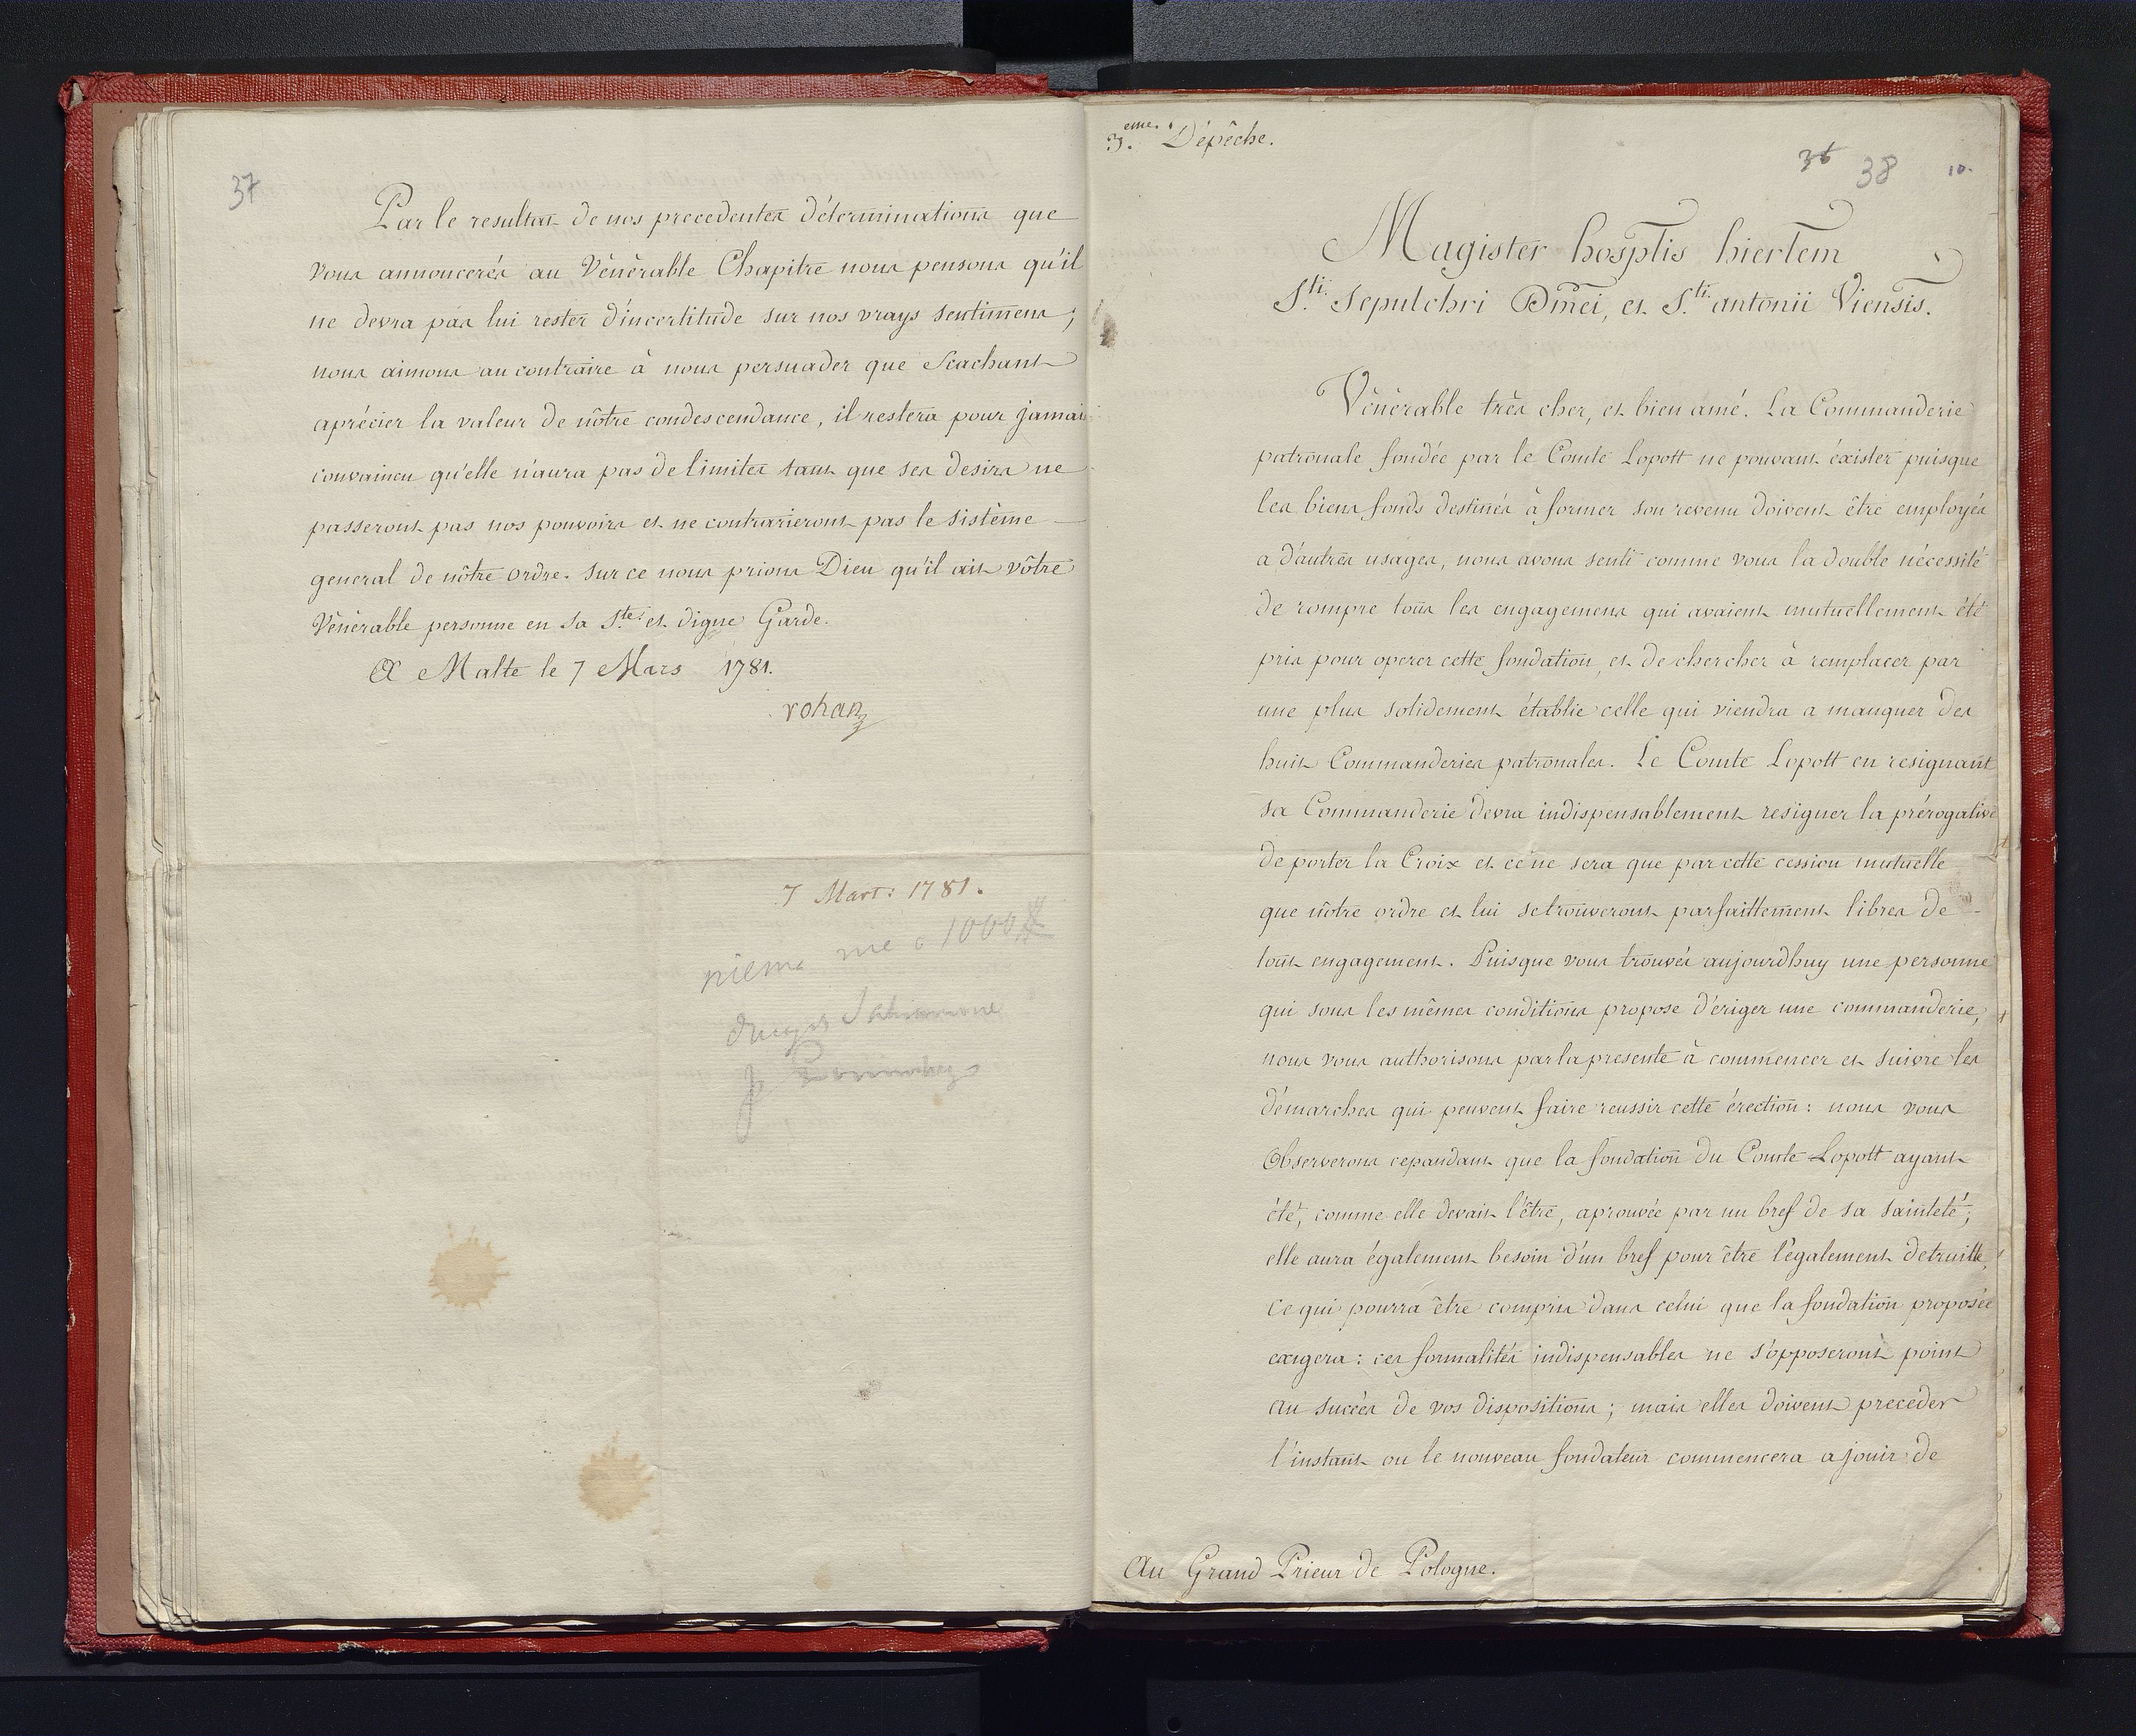 37
Par le resultat de nos precedentes déterminations que
vous annoncerés au Vénérable Chapitre nous pensons qu'il
ne devra pas lui rester d'incertitude sur nos vrays sentimens;
nous aimons au contraire à nous persuader que Scachant
aprécier la valeur de nôtre condescendance, il restera pour jamais
convaincu qu'elle n'aura pas de limites tant que ses desirs ne
passeront pas nos pouvoirs et ne contrarieront pas le sistême
general de nôtre ordre. Sur ce nous prions Dieu qu'il ait vôtre
Vénérable personne en sa S.te et digne Garde.
A Malte le 7 Mars 1781.
rohan
7 Mart: 1781.
niema 1000
3.eme Dépêche.
36 38 10.
Magister hosptis hierlem
S.ti Sepulchri Dmci, et S.ti antonii Viensis.
Vénérable très cher, et bien amé. La Commanderie
patronale fondée par le Comte Lopott ne pouvant éxister puisque
les biens fonds destinés à former son revenu doivent être employés
a d'autres usages, nous avons senti comme vous la double nécessité
de rompre tous les engagemens qui avaient mutuellement été
pris pour operer cette fondation, et de chercher à remplacer par
une plus solidement établie celle qui viendra a manquer des
huit Commanderies patronales. Le Comte Lopott en resignant
sa Commanderie devra indispensablement resigner la prérogative
de porter la Croix et ce ne sera que par cette cession mutuelle
que nôtre ordre et lui se trouveront parfaittement libres de
tout engagement. Puisque vous trouvés aujourdhuy une personne
qui sous les mêmes conditions propose d'ériger une commanderie,
nous vous authorisons par la presente à commencer et suivre les
démarches qui peuvent faire reussir cette érection: nous vous
Observerons cepandant que la fondation du Comte Lopott ayant
été, comme elle devait l'être, aprouvée par un bref de sa sainteté;
elle aura également besoin d'un bref pour être légalement detruitte,
ce qui pourra être compris dans celui que la fondation proposée
exigera: ces formalités indispensables ne s'opposeront point
au succés de vos dispositions; mais elles doivent preceder
l'instant ou le nouveau fondateur commencera a jouir de
Au Grand Prieur de Pologne.